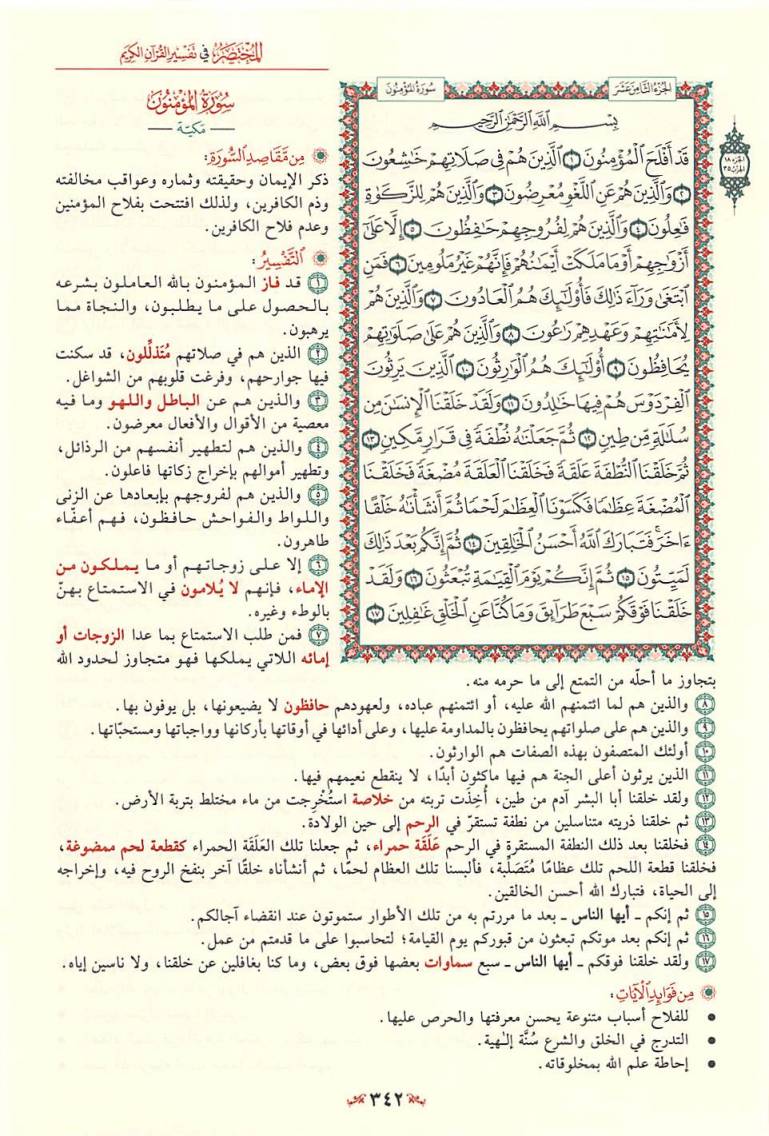 المختصر في تفسير القرآن الكريم
الجزء الثامن عشر
سورة المؤمنون
بِسْمِ اللَّهِ الرَّحْمَٰنِ الرَّحِيمِ
قَدْ أَفْلَحَ الْمُؤْمِنُونَ ١ الَّذِينَ هُمْ فِي صَلَاتِهِمْ خَاشِعُونَ
٢ وَالَّذِينَ هُمْ عَنِ اللَّغْوِ مُعْرِضُونَ ٣ وَالَّذِينَ هُمْ لِلزَّكَوٰةِ
فَاعِلُونَ ٤ وَالَّذِينَ هُمْ لِفُرُوجِهِمْ حَافِظُونَ ٥ إِلَّا عَلَىٰ
أَزْوَاجِهِمْ أَوْ مَا مَلَكَتْ أَيْمَانُهُمْ فَإِنَّهُمْ غَيْرُ مَلُومِينَ ٦ فَمَنِ
ابْتَغَىٰ وَرَاءَ ذَٰلِكَ فَأُولَٰئِكَ هُمُ الْعَادُونَ ٧ وَالَّذِينَ هُمْ
لِأَمَانَاتِهِمْ وَعَهْدِهِمْ رَاعُونَ ٨ وَالَّذِينَ هُمْ عَلَىٰ صَلَوَاتِهِمْ
يُحَافِظُونَ ٩ أُولَٰئِكَ هُمُ الْوَارِثُونَ ١٠ الَّذِينَ يَرِثُونَ
الْفِرْدَوْسَ هُمْ فِيهَا خَالِدُونَ ١١ وَلَقَدْ خَلَقْنَا الْإِنسَانَ مِن
سُلَالَةٍ مِّن طِينٍ ١٢ ثُمَّ جَعَلْنَاهُ نُطْفَةً فِي قَرَارٍ مَّكِينٍ ١٣
ثُمَّ خَلَقْنَا النُّطْفَةَ عَلَقَةً فَخَلَقْنَا الْعَلَقَةَ مُضْغَةً فَخَلَقْنَا
الْمُضْغَةَ عِظَامًا فَكَسَوْنَا الْعِظَامَ لَحْمًا ثُمَّ أَنشَأْنَاهُ خَلْقًا
ءَاخَرَ ۚ فَتَبَارَكَ اللَّهُ أَحْسَنُ الْخَالِقِينَ ١٤ ثُمَّ إِنَّكُم بَعْدَ ذَٰلِكَ
لَمَيِّتُونَ ١٥ ثُمَّ إِنَّكُمْ يَوْمَ الْقِيَامَةِ تُبْعَثُونَ ١٦ وَلَقَدْ
خَلَقْنَا فَوْقَكُمْ سَبْعَ طَرَائِقَ وَمَا كُنَّا عَنِ الْخَلْقِ غَافِلِينَ ١٧
سورة المؤمنون
مكية
من مقاصد السورة:
ذكر الإيمان وحقيقته وثماره وعواقب مخالفته
وذم الكافرين، ولذلك افتتحت بفلاح المؤمنين
وعدم فلاح الكافرين.
التفسير:
١ قد فاز المؤمنون بالله العاملون بشرعه
بالحصول على ما يطلبون، والنجاة مما
يرهبون.
٢ الذين هم في صلاتهم مُتَذلِّلون، قد سكنت
فيها جوارحهم، وفرغت قلوبهم من الشواغل.
٣ والذين هم عن الباطل واللهو وما فيه
معصية من الأقوال والأفعال معرضون.
٤ والذين هم لتطهير أنفسهم من الرذائل،
وتطهير أموالهم بإخراج زكاتها فاعلون.
٥ والذين هم لفروجهم بإبعادها عن الزنى
واللواط والفواحش حافظون، فهم أعفّاء
طاهرون.
٦ إلا على زوجاتهم أو ما يملكون من
الإماء، فإنهم لا يُلامون في الاستمتاع بهنّ
بالوطء وغيره.
٧ فمن طلب الاستمتاع بما عدا الزوجات أو
إمائه اللاتي يملكها فهو متجاوز لحدود الله
بتجاوز ما أحلّه من التمتع إلى ما حرمه منه.
٨ والذين هم لما ائتمنهم الله عليه، أو ائتمنهم عباده، ولعهودهم حافظون لا يضيعونها، بل يوفون بها.
٩ والذين هم على صلواتهم يحافظون بالمداومة عليها، وعلى أدائها في أوقاتها بأركانها وواجباتها ومستحبّاتها.
١٠ أولئك المتصفون بهذه الصفات هم الوارثون.
١١ الذين يرثون أعلى الجنة هم فيها ماكثون أبدًا، لا ينقطع نعيمهم فيها.
١٢ ولقد خلقنا أبا البشر آدم من طين، أُخِذَت تربته من خلاصة استُخْرِجت من ماء مختلط بتربة الأرض.
١٣ ثم خلقنا ذريته متناسلين من نطفة تستقرّ في الرحم إلى حين الولادة.
١٤ فخلقنا بعد ذلك النطفة المستقرة في الرحم عَلَقَة حمراء، ثم جعلنا تلك العَلَقَة الحمراء كقطعة لحم ممضوغة،
فخلقنا قطعة اللحم تلك عظامًا مُتَصَلِّبة، فألبسنا تلك العظام لحمًا، ثم أنشأناه خلقًا آخر بنفخ الروح فيه، وإخراجه
إلى الحياة، فتبارك الله أحسن الخالقين.
١٥ ثم إنكم ـ أيها الناس ـ بعد ما مررتم به من تلك الأطوار ستموتون عند انقضاء آجالكم.
١٦ ثم إنكم بعد موتكم تبعثون من قبوركم يوم القيامة؛ لتحاسبوا على ما قدمتم من عمل.
١٧ ولقد خلقنا فوقكم ـ أيها الناس ـ سبع سماوات بعضها فوق بعض، وما كنا بغافلين عن خلقنا، ولا ناسين إياه.
من فوائد الآيات:
• للفلاح أسباب متنوعة يحسن معرفتها والحرص عليها.
• التدرج في الخلق والشرع سُنَّة إلـٰهية.
• إحاطة علم الله بمخلوقاته.
٣٤٢